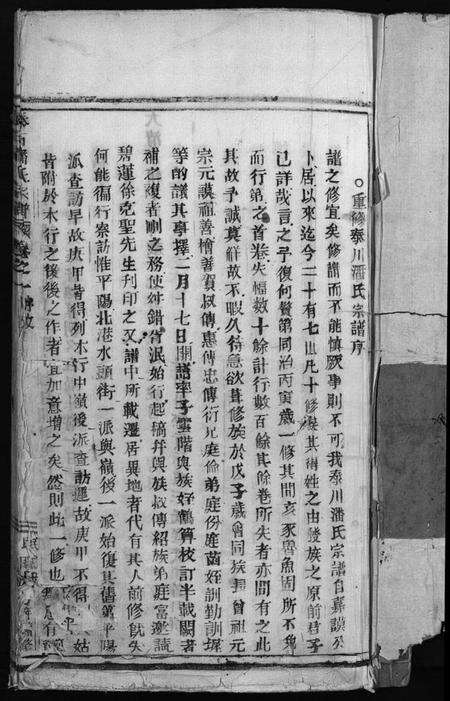 ○重修泰川潘氏宗譜序
譜之修宜矣修譜而不能慎厥事則不可我泰川潘氏宗譜自嘉謨公
卜居以來迄今二十有七世凡十修矣其得姓之由發族之原前君子
已詳哉言之予復何贅第同治丙寅歲一修其間亥豕魯魚固所不免
而行第之首卷失幅數十餘計行數百餘其餘卷所失者亦間有之此
其故予誠莫解故不暇久待急欲葺修族於戊子歲會同族長曾祖元
宗元謨祖善檜善賀叔傳惠傳忠傳衍兄庭倫弟庭份庭菌姪訓勤訓墀
等酌議其事擇二月十七日開譜率子雲階與族好鶴算校訂半載闕者
補之復者删之務使姓錯皆泯始行起稿幷與族叔傳紹族弟庭富邀請
碧蓮徐克聖先生刋印之又譜中所載遷居異地者代有其人前修旣失
何能徧行察訪惟平陽北港水頭街一派與嶺後一派始復其舊第平陽
派查訪早故庚甲皆得列木行中嶺後派查訪遲故庚甲不得 姑
皆附於木行之後後之作者宜加意增之矣然則此一修也